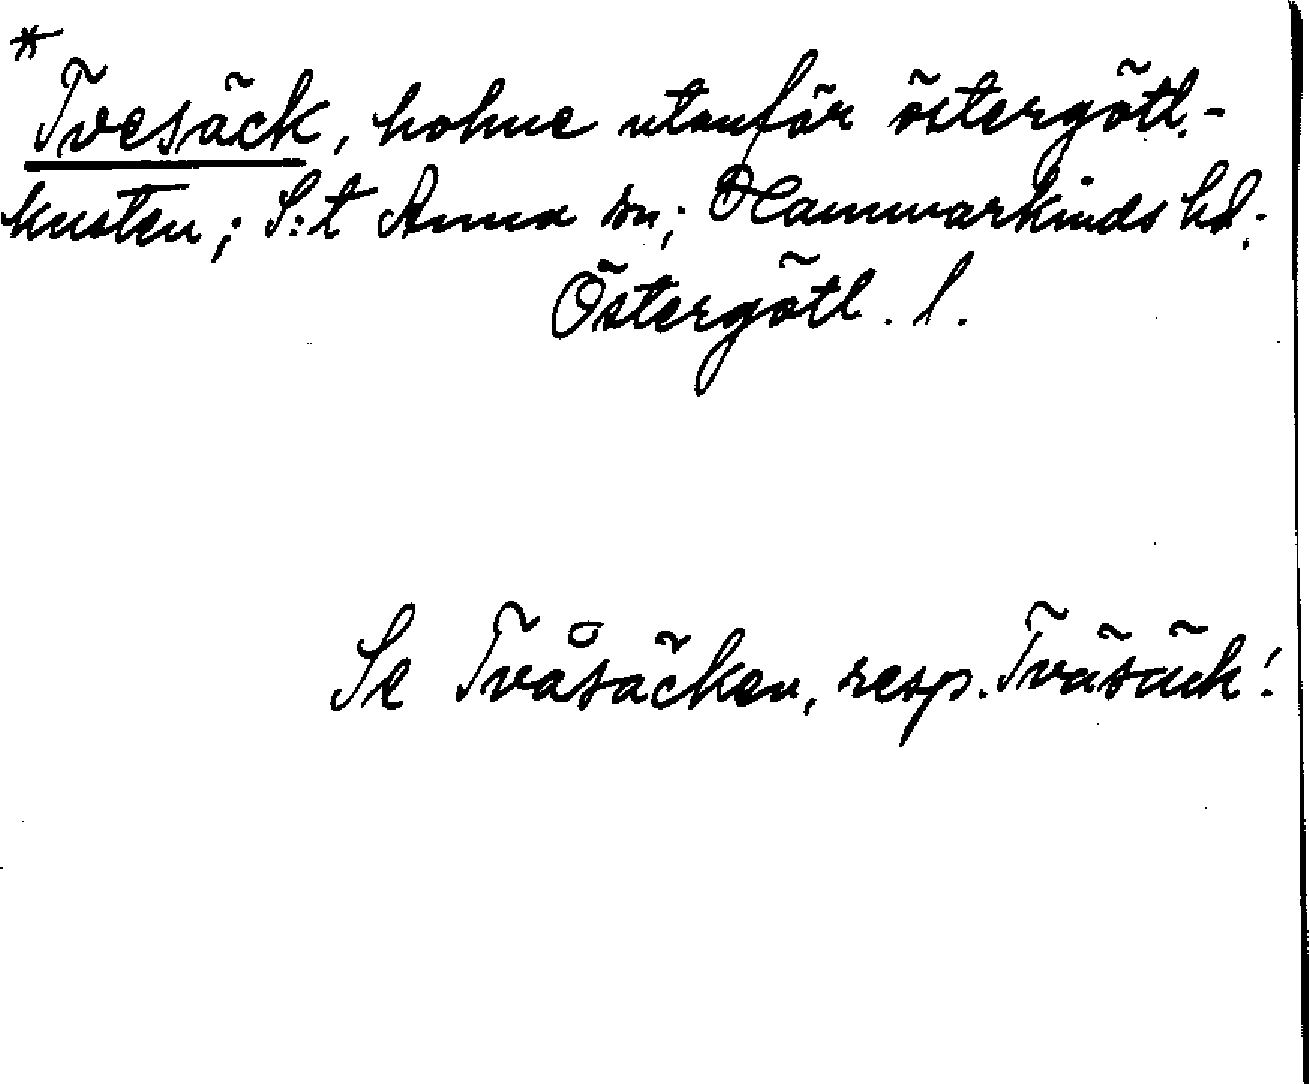 *
Tvesäck, holme utanför östergötl.-
kusten; S:t Anna sn; Hammarkinds hd;
Östergötl. l.
Se Tvåsäcken, resp. Tväsäck!